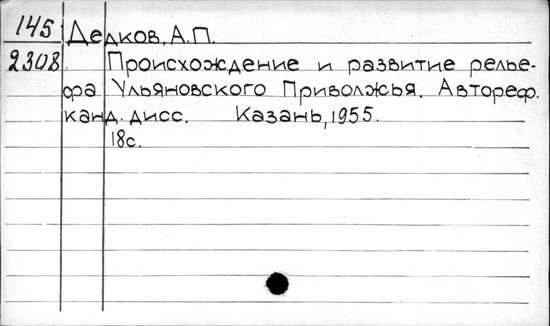 145 Дедков, А.П.
2308 Происхождение и развитие релье-
фа Ульяновского Приволжья. Автореф.
канд. дисс. Казань, 1955.
18с.